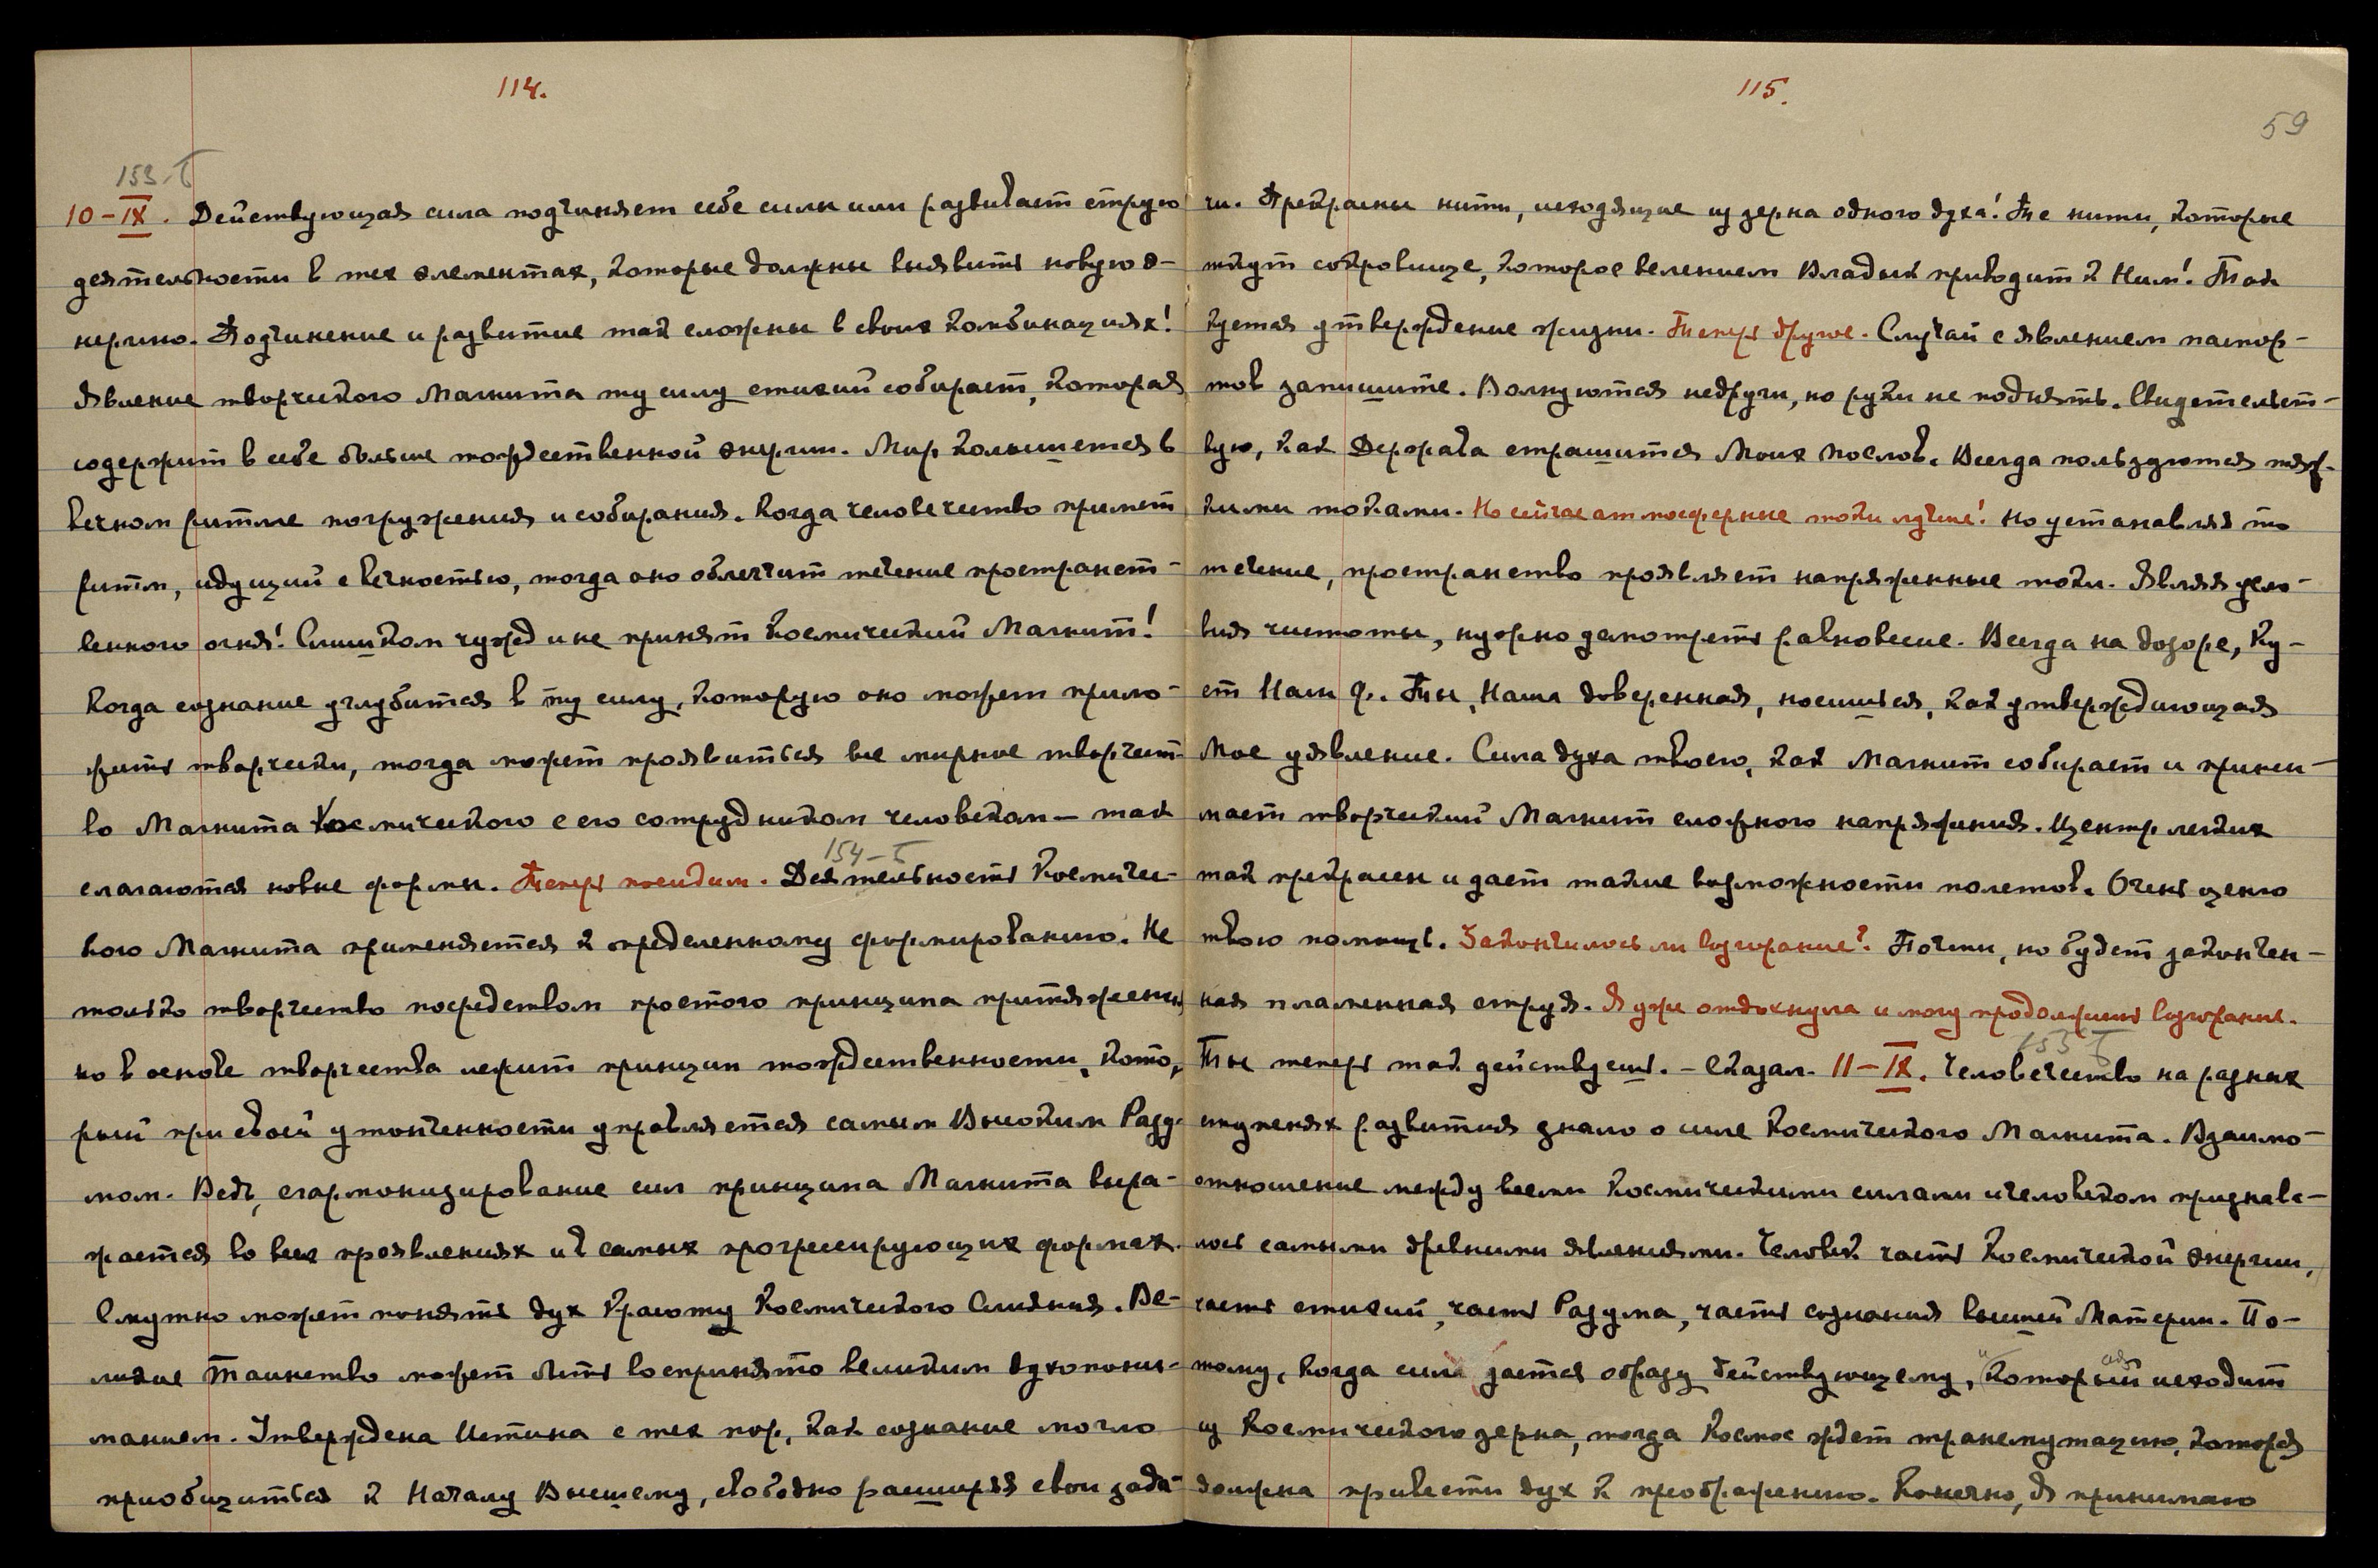 114.
153-Б
10-IX. Действующая сила подчиняет себе силы или развивает струю
деятельности в тех элементах, которые должны выявить новую э-
нергию. Подчинение и развитие так сложны в своих комбинациях!
Явление творческого Магнита ту силу стихий собирает, которая
содержит в себе больше тождественной энергии. Мир колышется в
вечном ритме погружения и собирания. Когда человечество примет
ритм, идущий с вечностью, тогда оно облегчит течение пространст-
венного огня! Слишком чужд и не принят Космический Магнит!
Когда сознание углубится в ту силу, которую оно может прило-
жить творчески, тогда может проявиться все мирное творчест-
во Магнита Космического с его сотрудником человеком — так
слагаются новые формы. Теперь посидим. 154-Б Деятельность Космичес-
кого Магнита применяется к определенному формированию. Не
только творчество посредством простого принципа притяжения,
но в основе творчества лежит принцип тождественности, кото-
рый при своей утонченности управляется самым Высоким Разу-
мом. Ведь, сгармонизирование сил принципа Магнита выра-
жается во всех проявлениях и в самых прогрессирующих формах.
Смутно может понять дух Красоту Космического Слияния. Ве-
ликое Таинство может быть воспринято великим духопони-
манием. Утверждена Истина с тех пор, как сознание могло
приобщиться к Началу Высшему, свободно расширяя свои зада-
115.
59
чи. Прекрасны нити, исходящие из зерна одного духа! Те нити, которые
ткут сокровище, которое велением Владык приводит к Ним! Так
куется утверждение жизни. Теперь другое. Случай с явлением паспор-
тов запишите. Волнуются недруги, но руки не поднять. Свидетельст-
вую, как Держава страшится Моих послов. Всегда пользуются тяж-
кими токами. Но сейчас атмосферные токи лучше! Но устанавляя то
течение, пространство проявляет напряженные токи. Являя усло-
вия чистоты, нужно усмотреть равновесие. Всегда на дозоре, Ку-
ет Наш Ф. Ты, Наша доверенная, носишься, как утверждающая
Мое уявление. Сила духа твоего, как Магнит собирает и прини-
мает творческий Магнит сложного напряжения. Центр легких
так прекрасен и дает такие возможности полетов. Очень ценю
твою помощь. Закончилось ли возгорание? Почти, но будет закончен-
ная пламенная струя. Я уже отдохнула и могу продолжить возгорание.
Ты теперь так действуешь. – Сказал. 11-IX. 155-Б Человечество на разных
ступенях развития знало о силе Космического Магнита. Взаимо-
отношение между всеми Космическими силами и человеком признава-
лось самыми древними явлениями. Человек часть Космической энергии,
часть стихий, часть Разума, часть сознания высшей Материи. По-
тому, когда сила дается образу действующему, который исходит
из Космического зерна, тогда Космос ждет трансмутацию, которая
должна привести дух к преображению. Конечно, Я принимаю